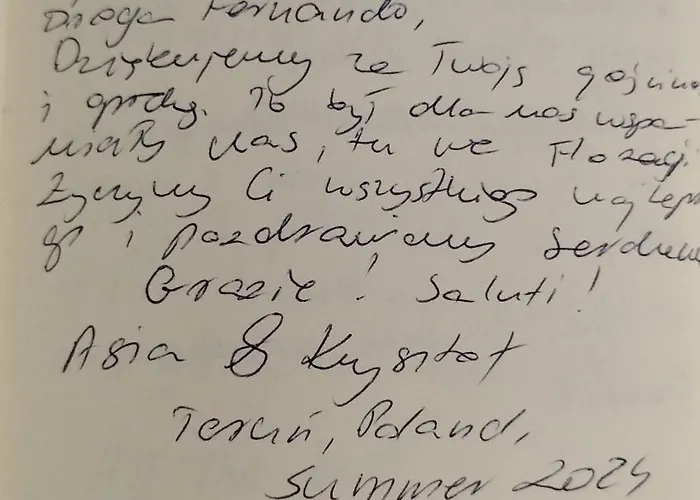 Droga Fernando,
Dziękujemy za Twoją gościnn
i zgodę. To był dla nas wspa-
niały czas, tu we
Życzymy Ci wszystkiego najlep
go i pozdrawiamy serdeczn
Grazie! Saluti!
Asia & Krysztof
Toruń, Poland,
Summer 2024